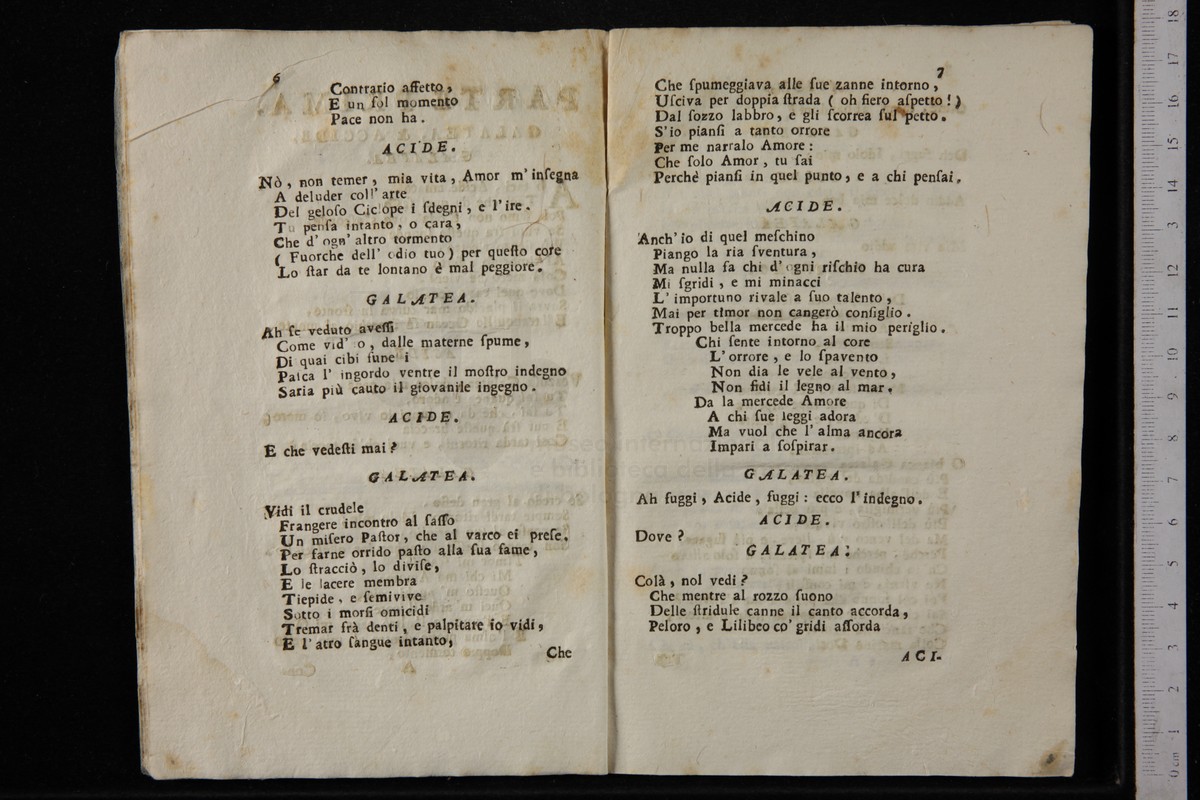 6
Contrario affetto,
E un ſol momento
Pace non ha.
ACIDE.
Nò, non temer, mia vita, Amor m'inſegna
A deluder coll' arte
Del geloſo Ciclope i ſdegni, e l'ire.
Tu penſa intanto, o cara,
Che d' ogn' altro tormento
( Fuorche dell' odio tuo ) per queſto core
Lo ſtar da te lontano è mal peggiore.
GALATEA.
Ah ſe veduto aveſſi
Come vid' o, dalle materne ſpume,
Di quai cibi fune i
Paſca l' ingordo ventre il moſtro indegno
Saria più cauto il giovanile ingegno.
ACIDE.
E che vedeſti mai?
GALATEA.
Vidi il crudele
Frangere incontro al ſaſſo
Un miſero Paſtor, che al varco ei preſe.
Per farne orrido paſto alla ſua fame,
Lo ſtracciò, lo diviſe,
E le lacere membra
Tiepide, e ſemivive
Sotto i morſi omicidi
Tremar frà denti, e palpitare io vidi,
E l'atro ſangue intanto,
Che
7
Che ſpumeggiava alle ſue zanne intorno,
Uſciva per doppia ſtrada ( oh fiero aſpetto! )
Dal ſozzo labbro, e gli ſcorrea ſul petto.
S'io pianſi a tanto orrore
Per me narralo Amore:
Che ſolo Amor, tu ſai
Perchè pianſi in quel punto, e a chi penſai.
ACIDE.
Anch'io di quel meſchino
Piango la ria ſventura,
Ma nulla fa chi d' ogni riſchio ha cura
Mi ſgridi, e mi minacci
L' importuno rivale a ſuo talento,
Mai per timor non cangerò conſiglio.
Troppo bella mercede ha il mio periglio.
Chi ſente intorno al core
L' orrore, e lo ſpavento
Non dia le vele al vento,
Non fidi il legno al mar.
Da la mercede Amore
A chi ſue leggi adora
Ma vuol che l' alma ancora
Impari a ſoſpirar.
GALATEA.
Ah fuggi, Acide, fuggi: ecco l'indegno.
ACIDE.
Dove?
GALATEA:
Colà, nol vedi?
Che mentre al rozzo ſuono
Delle ſtridule canne il canto accorda,
Peloro, e Lilibeo co' gridi aſſorda
ACI-